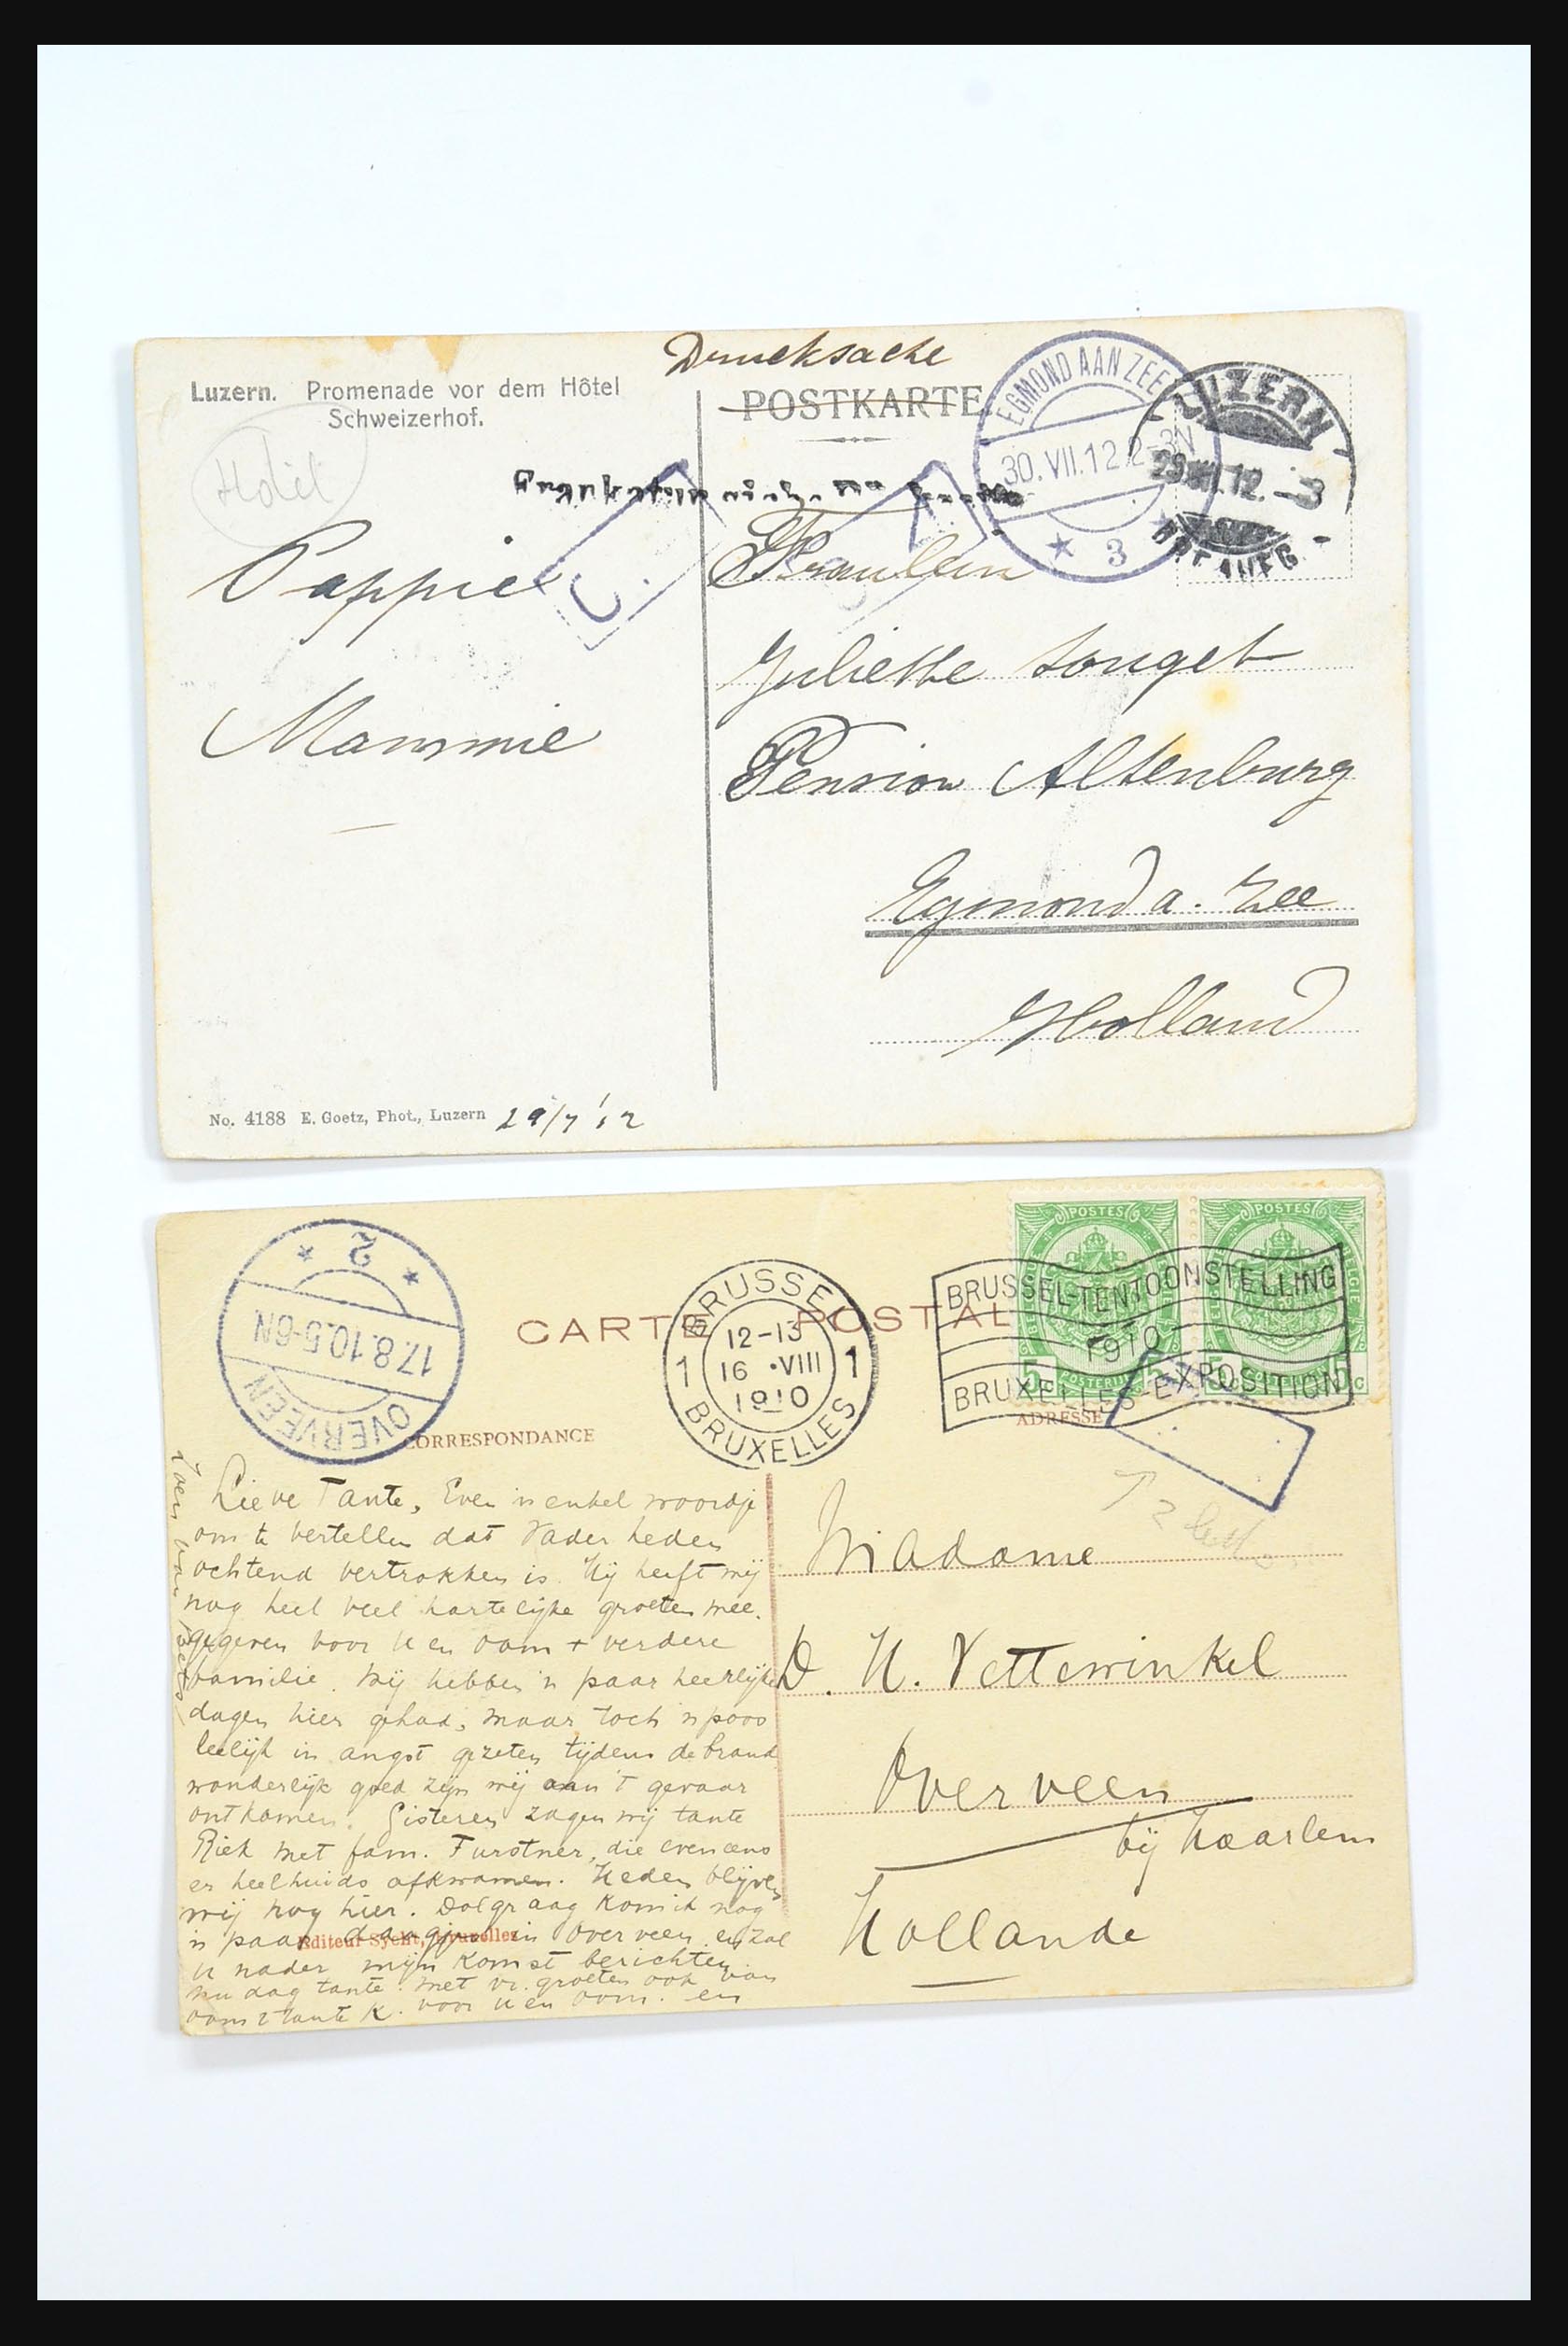 Drucksache
Luzern. Promenade vor dem Hôtel
Schweizerhof.
POSTKARTE
EGMOND AAN ZEE
30.VII.12.2-3N
3
LUZERN
29.VII.12.-3
Hotel
Pappie
Mammie
Fraulein
Juliette Souget
Pension Altenburg
Egmond a. Zee
Holland
No. 4188 E. Goetz, Phot., Luzern 29/7 '12
2
17.8.10.5-6N
OVERVEEN
CARTE POSTALE
BRUSSEL
12-13
1 16 ·VIII 1
1910
BRUXELLES
POSTES
POSTES
BRUSSEL-TENTOONSTELLING
1910
BRUXELLES-EXPOSITION
CORRESPONDANCE
ADRESSE
Lieve Tante, Even 'n enkel woordje
om te vertellen dat Vader heden
ochtend vertrokken is. Hij heeft mij
nog heel veel hartelijke groeten mee.
gegeven voor U en oom + verdere
familie. Wij hebben 'n paar heerlijke
dagen hier gehad, maar toch 'n poos
leelijk in angst gezeten tijdens de brand
wonderlijk goed zijn wij aan 't gevaar
ontkomen. Gisteren zagen wij tante
Riek met fam. Furstner, die eveneens
er heelhuids afkwamen. Heden blijven
wij nog hier. Dolgraag kom ik nog
'n paar daagjes in Overveen en zal
U nader mijn komst berichten.
nu dag tante. met vr. groeten ook van
oom & tante K. voor U en oom. en
Editeur Sycht, Bruxelles
Madame
D. H. Vettewinkel
Overveen
bij Haarlem
Hollande